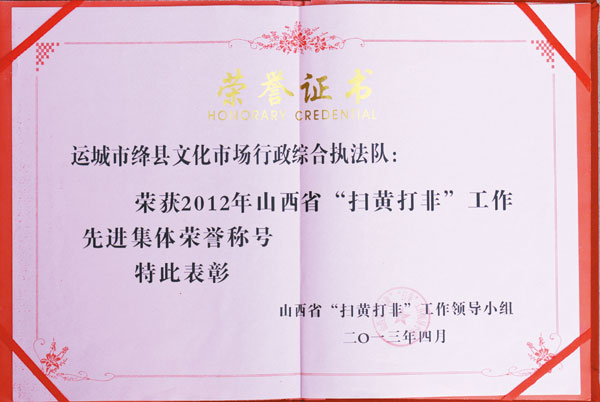 荣誉证书
HONORARY CREDENTIAL
运城市绛县文化市场行政综合执法队：
荣获2012年山西省“扫黄打非”工作
先进集体荣誉称号
特此表彰
山西省“扫黄打非”工作领导小组
二〇一三年四月